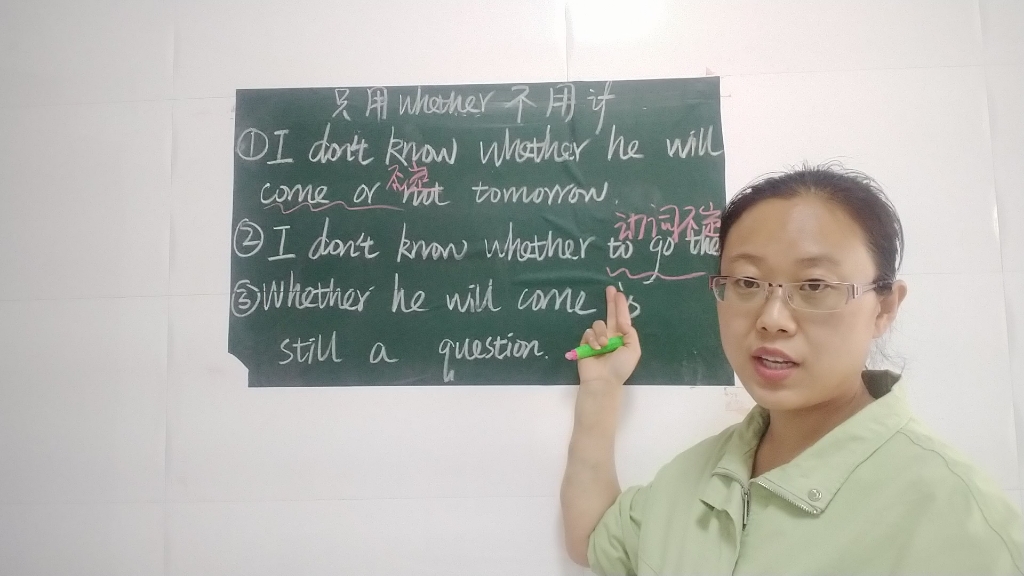 只用whether不用if
①I don't know whether he will
不定
come or not tomorrow.
动词不定
②I don't know whether to go the
③Whether he will come is
still a question.